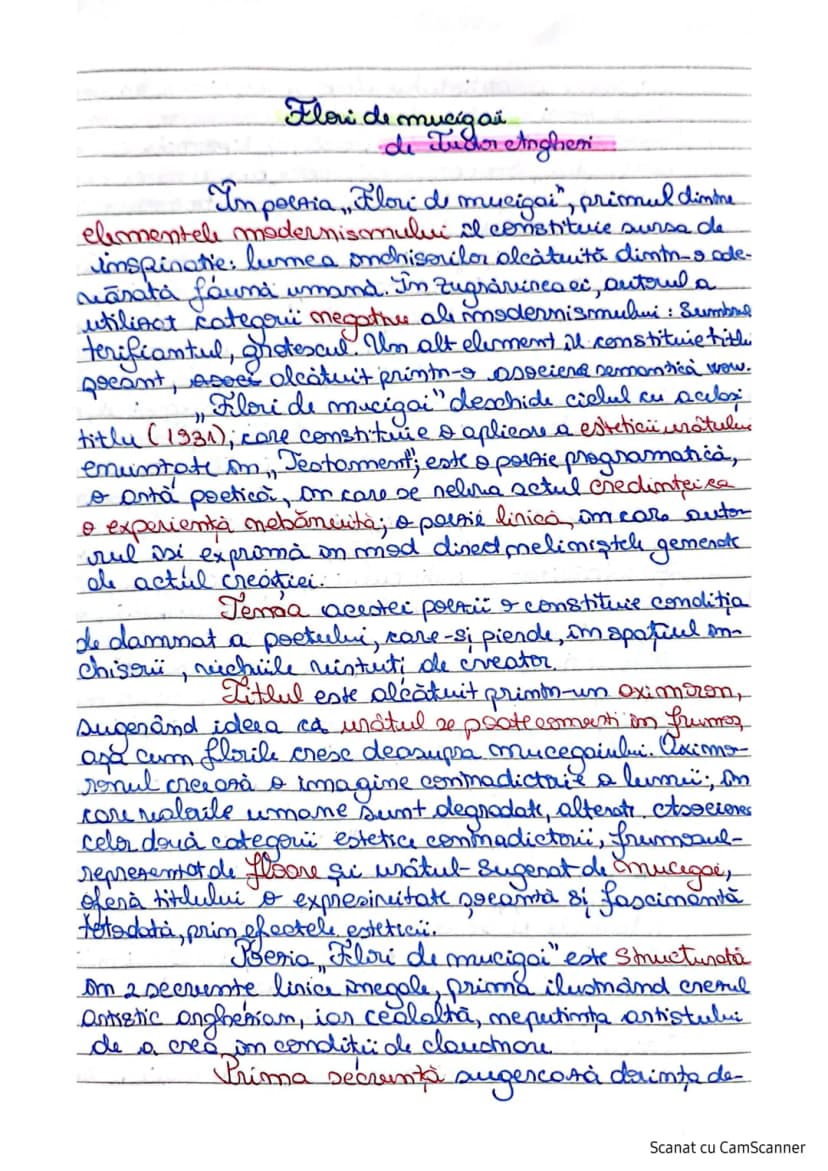 Flori de mucigai
de Tudor Arghezi
În poezia „Flori de mucigai", primul dintre
elementele modernismului îl constituie sursa de
inspirație: lumea închisorilor alcătuită dintr-o ade-
vărată faună umană. În zugrăvirea ei, autorul a
utilizat categorii negative ale modernismului: Sumbrul
terifiantul, grotescul. Un alt element îl constituie titlu
șocant, alcătuit printr-o asociere semantică
„Flori de mucigai" deschide ciclul cu același
titlu (1931); care constituie o aplicare a esteticii urâtului
enunțate în „Testament"; este o poezie programatică,
o artă poetică, în care se relevă actul credinței ca
o experiență nebănuită; o poezie lirică, în care auto-
rul își exprimă în mod direct neliniștele generate
de actul creației.
Tema acestei poezii o constituie condiția
de damnat a poetului, care-și pierde, în spațiul în-
chisorii, vechiile virtuți de creator.
Titlul este alcătuit printr-un oximoron,
sugerând ideea că urâtul se poate converti în frumos,
așa cum florile cresc deasupra mucegaiului. Oximo-
ronul creează o imagine contradictorie a lumii; în
care valorile umane sunt degradate, alterate. Asocierea
celor două categorii estetice contradictorii, frumosul-
reprezentat de floare și urâtul- sugerat de mucegai,
oferă titlului o expresivitate șocantă și fascinantă
totodată, prin efectele esteticii.
Poezia „Flori de mucigai" este Structurată
în 2 secvențe lirice inegale, prima ilustrând crezul
artistic arghezian, iar cealaltă, neputința artistului
de a crea în condiții de claustrare.
Prima secvență sugerează dorința de-
Scanat cu CamScanner